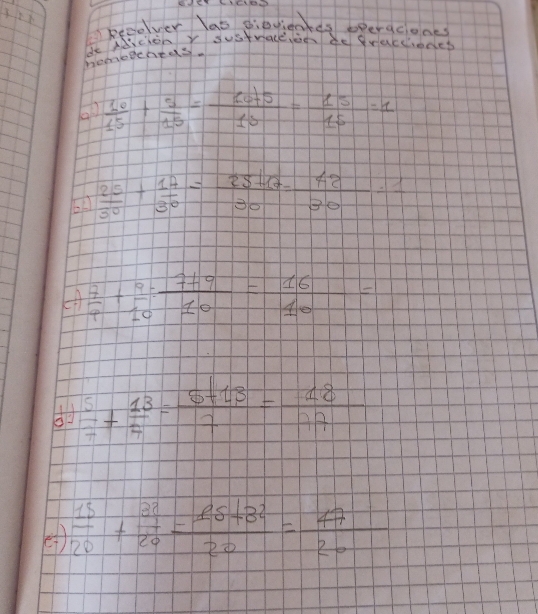 Resolver las siguientes operaciones
de Adición y sustracción de fracciones
homogeneas.
a) 10/15 + 5/15 = 10+5/15 = 15/15 = 1
b) 25/30 + 17/30 = 25+17/30 = 42/30 = 1
c) + 9/10 = 7+9/10 = 16/10 =
d) 5/7 + 13/7 = 5+13/7 = 18/77
e) 15/20 + 32/20 = 15+32/20 = 47/20